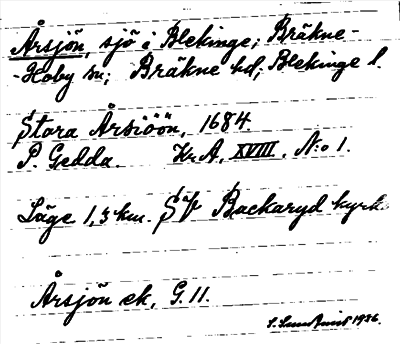 Årsjön, sjö i Blekinge; Bräkne-
-Hoby sn; Bräkne hd; Blekinge l.
Stora Årsiöön, 1684
P. Gedda. Kr.A, XVIII, N:o 1.
Läge 1,3 km. S Backaryd kyrk
Årsjön ek, G. 11.
1936.